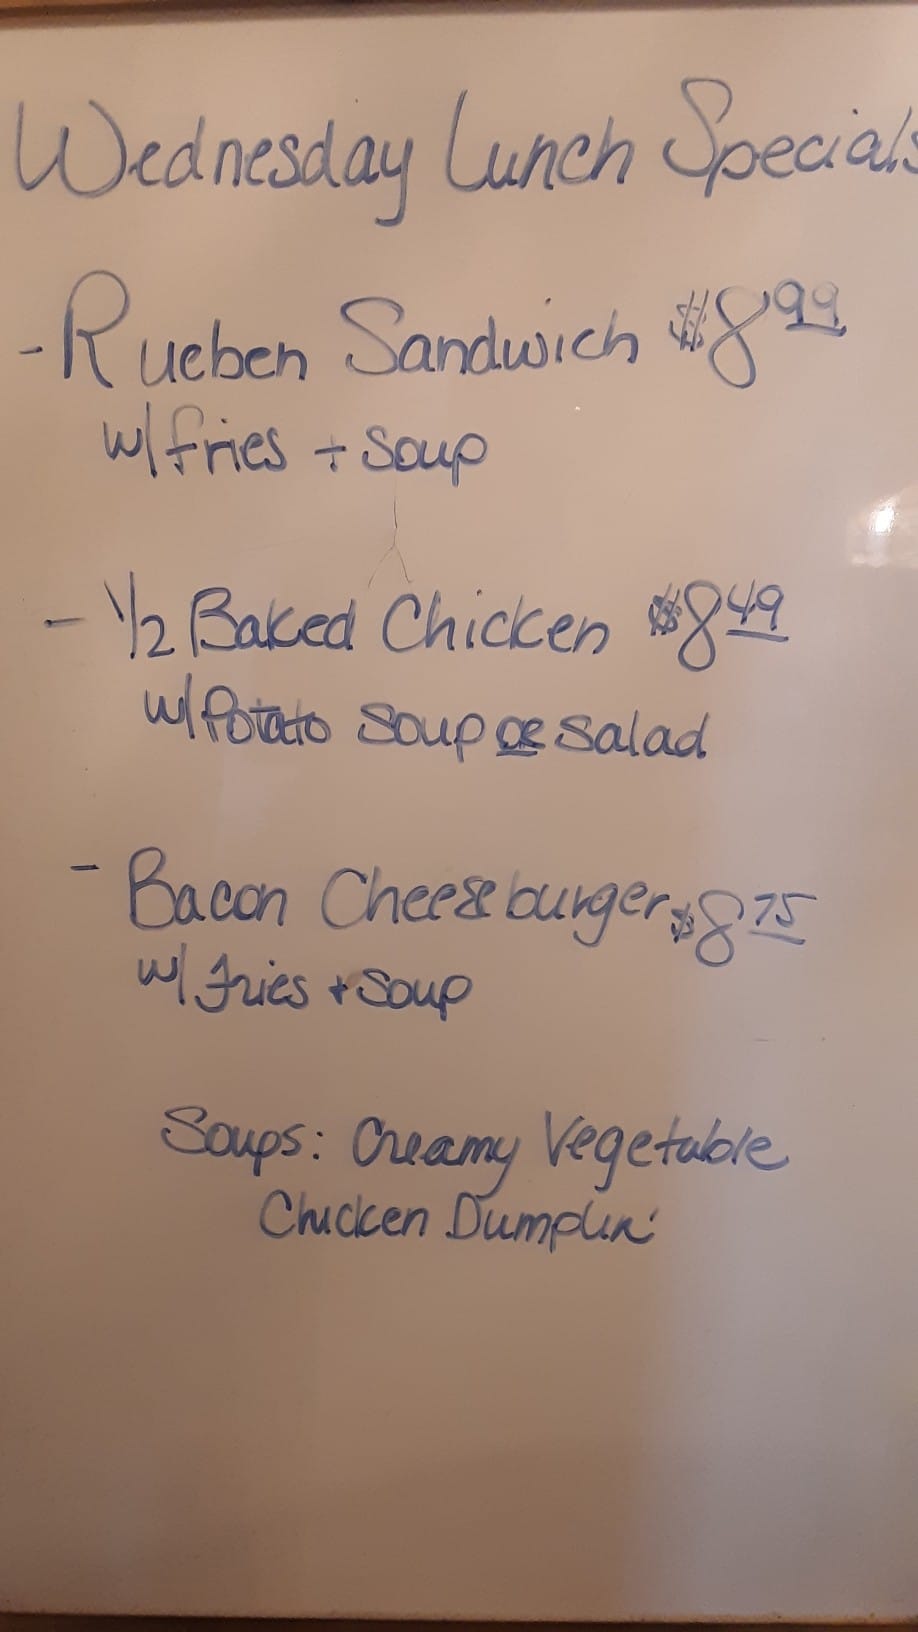 Wednesday Lunch Specials
- Rueben Sandwich $8.99
w/ fries + Soup
- 1/2 Baked Chicken $8.49
w/ Potato Soup or Salad
- Bacon Cheeseburger $8.75
w/ fries + Soup
Soups: Creamy Vegetable
Chicken Dumplin'